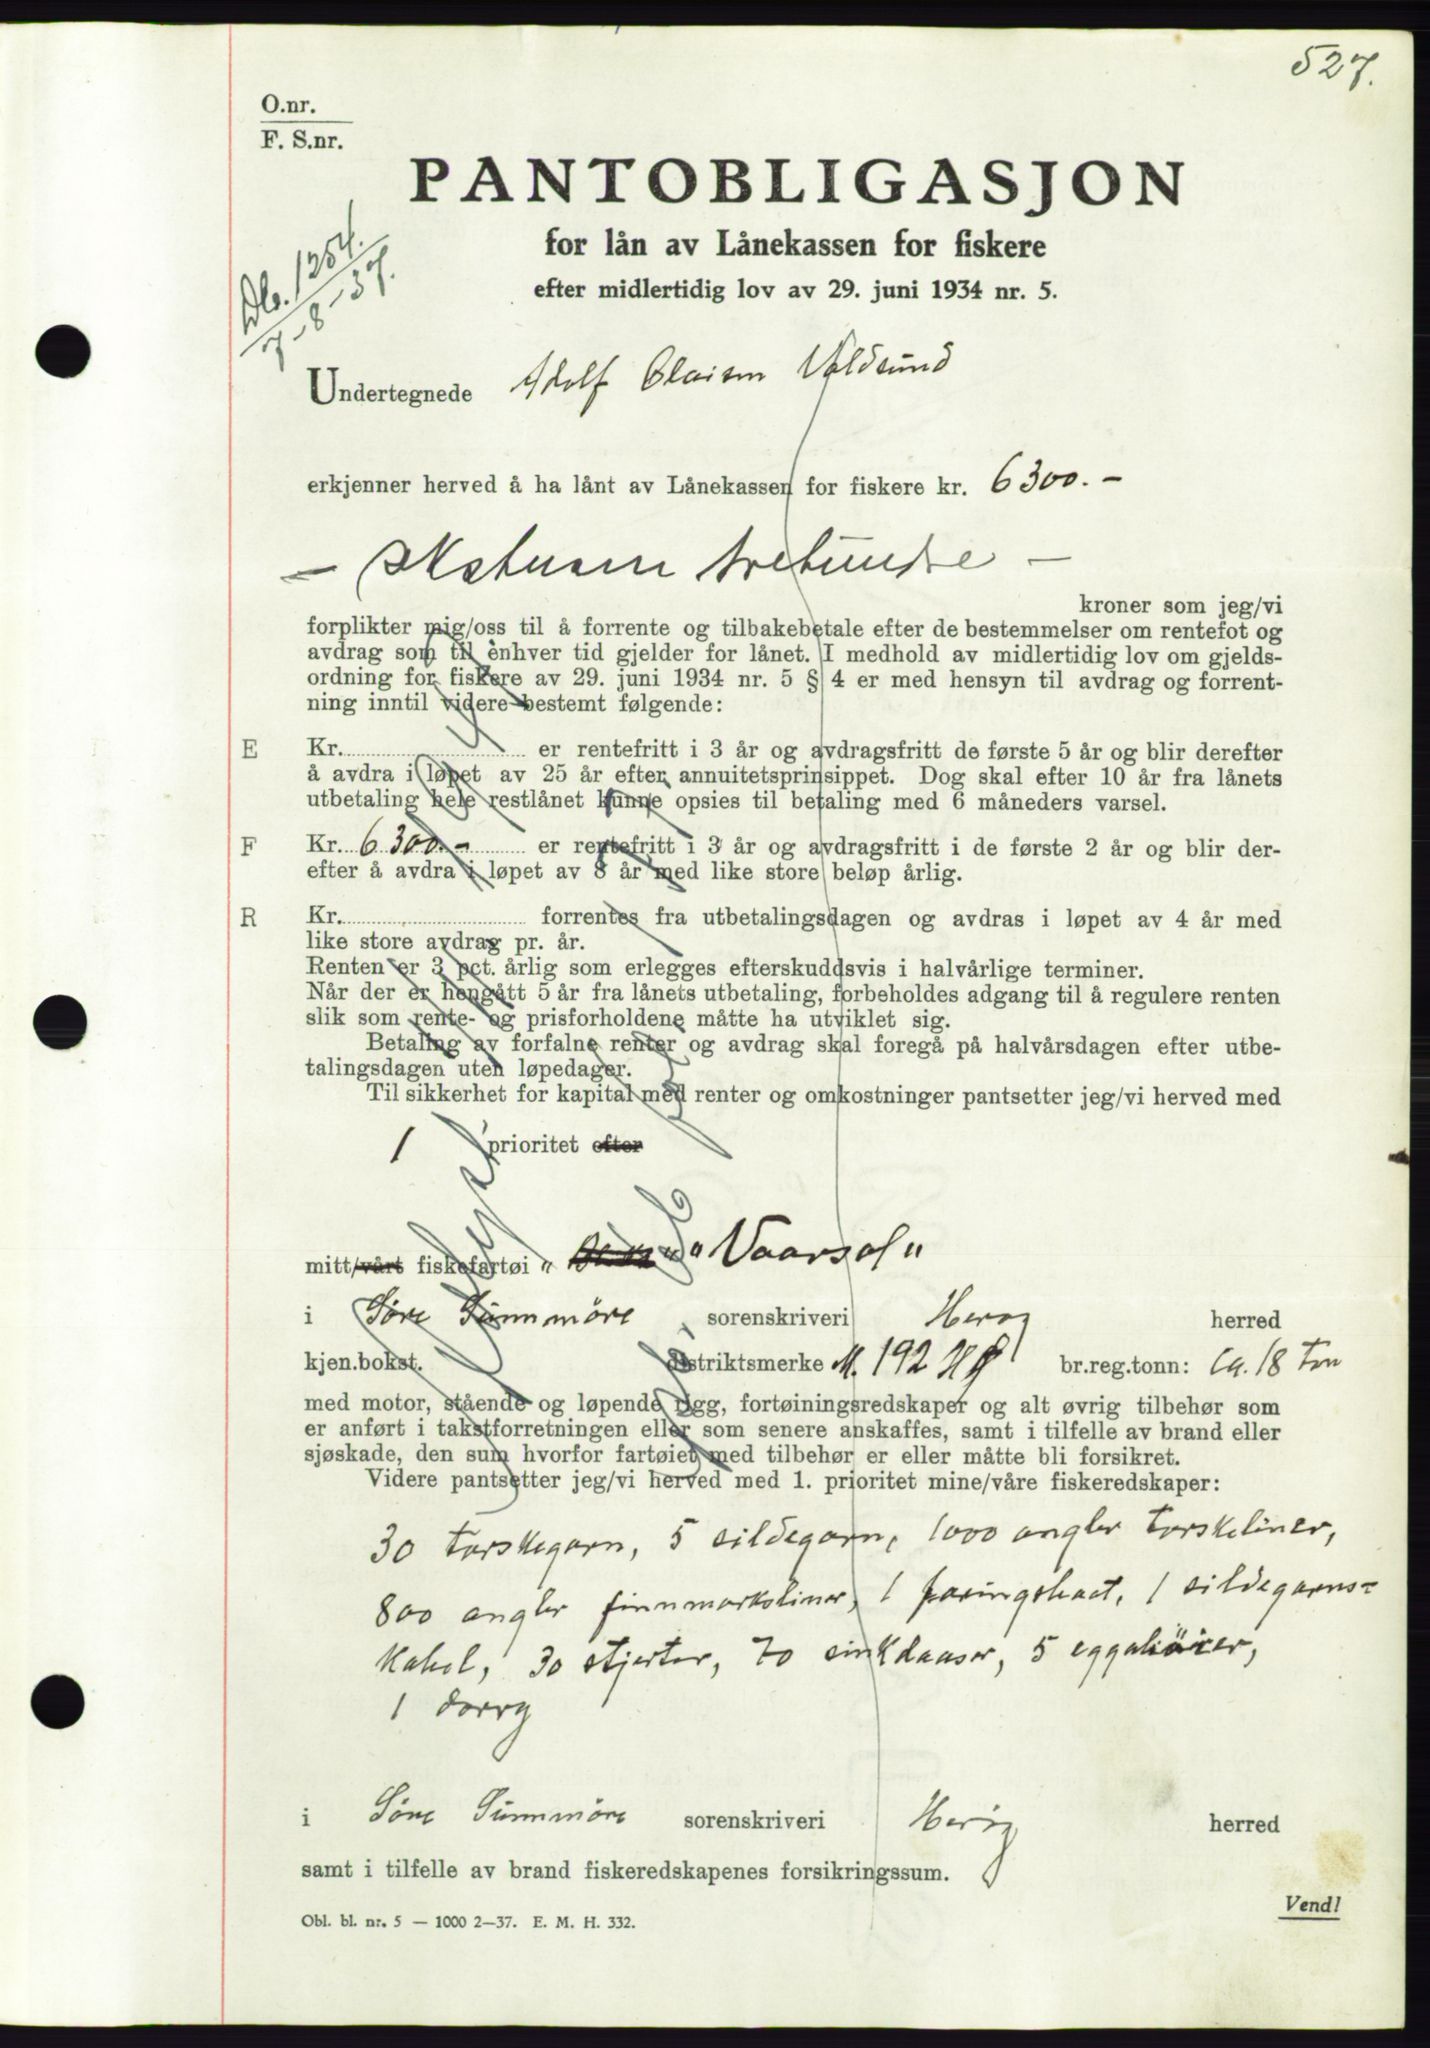 527.
O.nr.
F. S.nr.
PANTOBLIGASJON
for lån av Lånekassen for fiskere
efter midlertidig lov av 29. juni 1934 nr. 5.
Db. 1254.
7-8-37.
Undertegnede Adolf Olaisen Voldsund
erkjenner herved å ha lånt av Lånekassen for fiskere kr. 6300.-
- sekstusen trehundre -
kroner som jeg/vi
forplikter mig/oss til å forrente og tilbakebetale efter de bestemmelser om rentefot og
avdrag som til enhver tid gjelder for lånet. I medhold av midlertidig lov om gjelds-
ordning for fiskere av 29. juni 1934 nr. 5 § 4 er med hensyn til avdrag og forrent-
ning inntil videre bestemt følgende:
E Kr. er rentefritt i 3 år og avdragsfritt de første 5 år og blir derefter
å avdra i løpet av 25 år efter annuitetsprinsippet. Dog skal efter 10 år fra lånets
utbetaling hele restlånet kunne opsies til betaling med 6 måneders varsel.
F Kr. 6300.- er rentefritt i 3 år og avdragsfritt i de første 2 år og blir der-
efter å avdra i løpet av 8 år med like store beløp årlig.
R Kr. forrentes fra utbetalingsdagen og avdras i løpet av 4 år med
like store avdrag pr. år.
Renten er 3 pct. årlig som erlegges efterskuddsvis i halvårlige terminer.
Når der er hengått 5 år fra lånets utbetaling, forbeholdes adgang til å regulere renten
slik som rente- og prisforholdene måtte ha utviklet sig.
Betaling av forfalne renter og avdrag skal foregå på halvårsdagen efter utbe-
talingsdagen uten løpedager.
Til sikkerhet for kapital med renter og omkostninger pantsetter jeg/vi herved med
1 prioritet efter
mitt/vårt fiskefartøi " "Vaarsol"
i Søre Sunnmöre sorenskriveri Herøy herred
kjen.bokst. distriktsmerke M. 192 HØ br.reg.tonn: ca. 18 ton
med motor, stående og løpende rigg, fortøiningsredskaper og alt øvrig tilbehør som
er anført i takstforretningen eller som senere anskaffes, samt i tilfelle av brand eller
sjøskade, den sum hvorfor fartøiet med tilbehør er eller måtte bli forsikret.
Videre pantsetter jeg/vi herved med 1. prioritet mine/våre fiskeredskaper:
30 torskegarn, 5 sildegarn, 1000 angler torskeliner,
800 angler finnmarksliner, 1 1 sildegarns-
kabel, 30 stjerter, 70 5
1 dorry
i Søre Sunnmöre sorenskriveri Herøy herred
samt i tilfelle av brand fiskeredskapenes forsikringssum.
Vend!
Obl. bl. nr. 5 — 1000 2—37. E. M. H. 332.